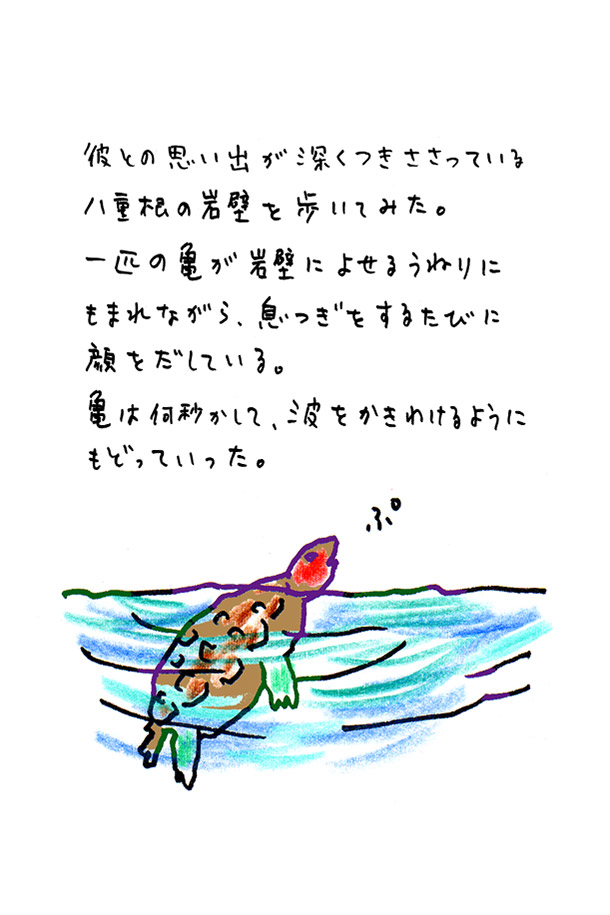 彼との思い出が深くつきささっている
八重根の岩壁を歩いてみた。
一匹の亀が岩壁によせるうねりに
もまれながら、息つぎをするたびに
顔をだしている。
亀は何秒かして、波をかきわけるように
もどっていった。
ぷ